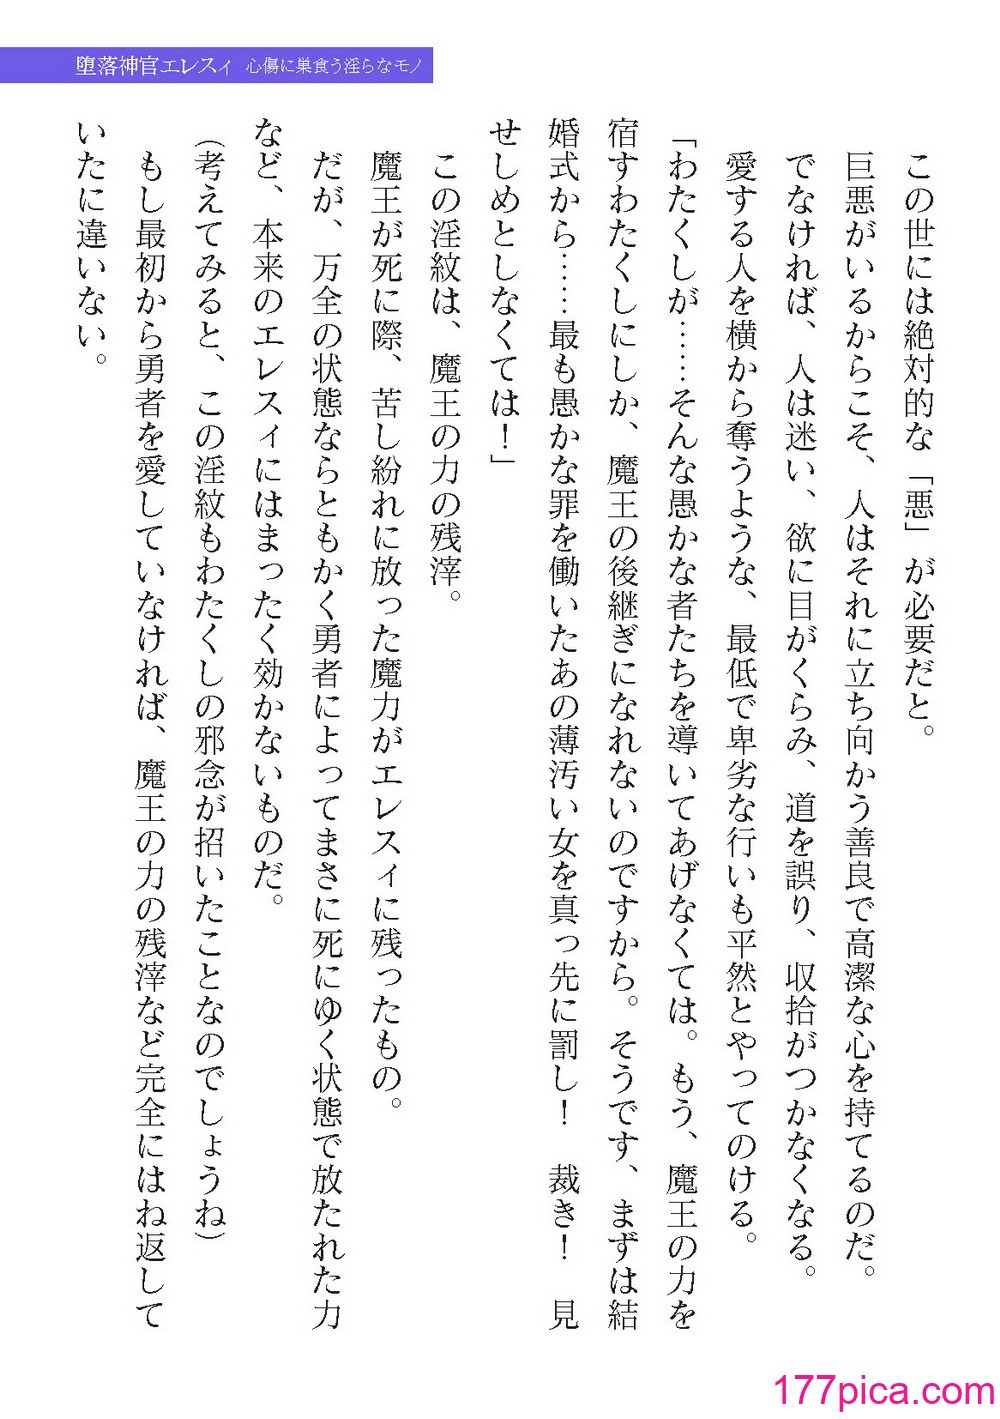 堕落神官エレスィ 心傷に巣食う淫らなモノ
この世には絶対的な「悪」が必要だと。
巨悪がいるからこそ、人はそれに立ち向かう善良で高潔な心を持てるのだ。
でなければ、人は迷い、欲に目がくらみ、道を誤り、収拾がつかなくなる。
愛する人を横から奪うような、最低で卑劣な行いも平然とやってのける。
「わたくしが……そんな愚かな者たちを導いてあげなくては。もう、魔王の力を
宿すわたくしにしか、魔王の後継ぎになれないのですから。そうです、まずは結
婚式から……最も愚かな罪を働いたあの薄汚い女を真っ先に罰し！　裁き！　見
せしめとしなくては！」
この淫紋は、魔王の力の残滓。
魔王が死に際、苦し紛れに放った魔力がエレスィに残ったもの。
だが、万全の状態ならともかく勇者によってまさに死にゆく状態で放たれた力
など、本来のエレスィにはまったく効かないものだ。
（考えてみると、この淫紋もわたくしの邪念が招いたことなのでしょうね）
もし最初から勇者を愛していなければ、魔王の力の残滓など完全にはね返して
いたに違いない。
177pica.com